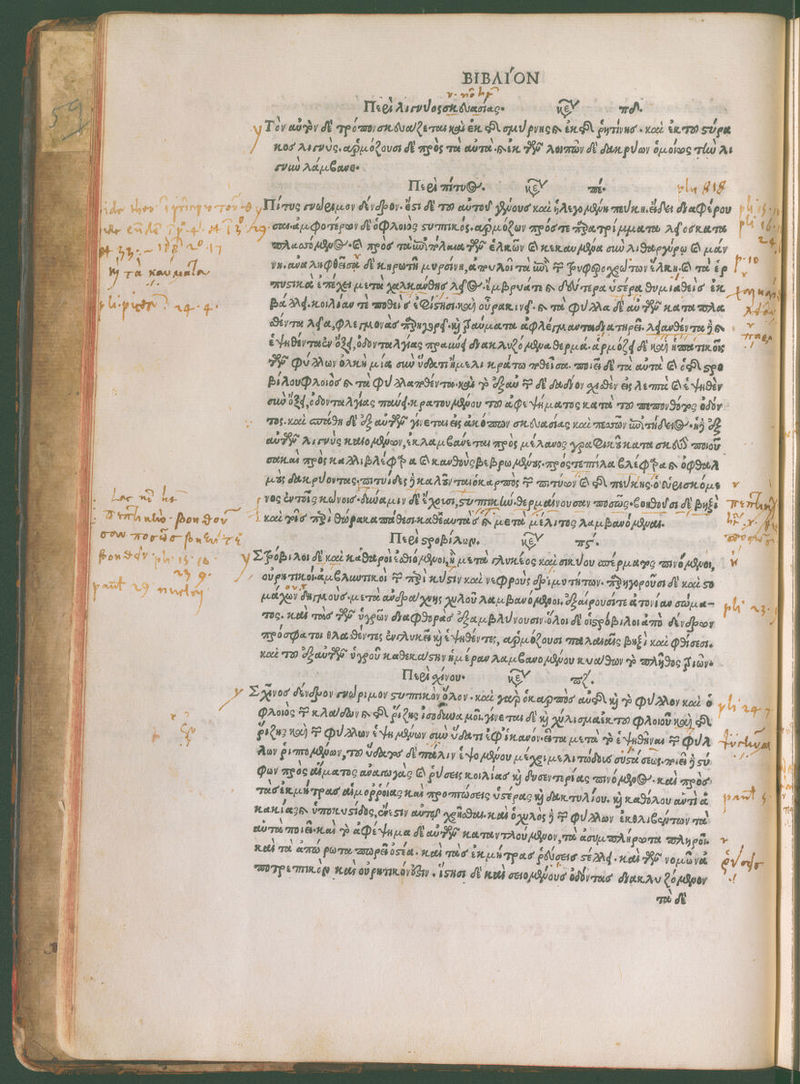 ΒΙΒΛΙΟΝ
Περὶ λιγνύος σκευασίας. κεφ πδ.
Τὸν αὐτὸν δὲ τρόπον σκευάζεται καὶ ἐκ τῆς σμύρνης & ἐκ τῆς ῥητίνης. καὶ ἐκ τοῦ στύρα
κος λιγνύς. ἁρμόζουσι δὲ πρὸς τὰ αὐτὰ. & ἐκ τῶν λοιπῶν δὲ δακρύων ὁμοίως τὴν λι
γνὺν λάμβανε.
Περὶ πίτυος. κεφ πε.
Πίτυς γνώριμον δένδρον. ἔστι δὲ τοῦ αὐτοῦ γένους καὶ ἡ λεγομένη πεύκη. εἴδει διαφέρου
σαι. ἀμφοτέρων δὲ ὁ φλοιὸς στυπτικός. ἁρμόζων πρός τε παρατρίμματα λεῖος κατα
πλασσόμενος. καὶ πρὸς τὰ ἐπιπόλαια τῶν ἑλκῶν καὶ κεκαυμένα σὺν λιθαργύρῳ καὶ μάν
νῃ. ἀναληφθεῖσα δὲ κηρωτῇ μυρσίνῃ, ἀπουλοῖ τὰ ἐπὶ τῶν τρυφεροχρώτων ἕλκη. καὶ τὰ ἑρ
πυστικὰ ἐπέχει μετὰ χαλκάνθης λεῖος. ἔμβρυά τε & δεύτερα ὑστέρα θυμιαθεὶς ἐκ
βάλλει. κοιλίαν τὲ ποθεὶς ἐφίστησι. καὶ οὖρα κινεῖ. & τὰ φύλλα δὲ αὐτῶν καταπλα
σθέντα λεῖα, φλεγμονὰς παρηγορεῖ. καὶ τραύματα ἀφλέγμαντα διατηρεῖ. λεανθέντα δὲ &
ἑψηθέντα ἐν ὄξει, ὀδονταλγίας πραΰνει διακλυζόμενα θερμά. ἁρμόζει δὲ καὶ ἡπατικοῖς
τῶν φύλλων ὁλκὴ μία σὺν ὕδατι ἢ μελικράτῳ ποθεῖσα. ποιεῖ δὲ τὰ αὐτὰ καὶ ὁ τῆς στρο
βίλου φλοιὸς & τὰ φύλλα ποθέντα. καὶ τὸ ἐξ αὐτῶν δὲ δαδίον σχισθὲν εἰς λεπτὰ καὶ ἑψηθὲν
σὺν ὄξει, ὀδονταλγίας παύει. κρατουμένου τοῦ ἀφεψήματος κατὰ τοῦ πεπονθότος ὀδόν
τος. καὶ σπάθη δὲ ἐξ αὐτῶν γίνεται εἰς ἀκόπων σκευασίας καὶ πεσσῶν ἐπιτήδειος. καὶ ἐξ
αὐτῶν λιγνὺς καιομένων, ἐκλαμβάνεται πρὸς μέλανος γραφικοῦ κατασκευὴν ποιοῦ
σα καὶ πρὸς καλλιβλέφαρα καὶ κανθοὺς βεβρωμένους. πρός τε πτίλα βλέφαρα & ὀφθαλ
μοὺς δακρύοντας. πιτυΐδες δὲ καλοῦνται ὁ καρπὸς τῶν πιτύων καὶ τῆς πεύκης. ὁ εὑρισκόμε
νος ἐν τοῖς κώνοις. δύναμιν δὲ ἔχουσι, στυπτικὴν. θερμαίνουσαν ποσῶς. βοηθοῦσι δὲ βηξὶ
καὶ τοῖς περὶ θώρακα πάθεσι καθ' ἑαυτὰς & μετὰ μέλιτος λαμβανόμεναι.
Περὶ στροβίλων. κεφ πϛ.
Στρόβιλοι δὲ καὶ καθαροὶ ἐσθιόμενοι, ἢ μετὰ γλυκέος καὶ σικύου σπέρματος πινόμενοι,
οὐρητικοὶ. ἀμβλυντικοὶ τῶν περὶ κύστιν καὶ νεφροὺς δριμυτήτων. παρηγοροῦσι δὲ καὶ στο
μάχων δηγμοὺς. μετὰ ἀνδράχνης χυλοῦ λαμβανόμενοι. ἐξαίρουσί τε ἀτονίαν σώμα-
τος. καὶ τὰς τῶν ὑγρῶν διαφθορὰς ἐξαμβλύνουσιν. ὅλοι δὲ οἱ στρόβιλοι ἀπὸ δένδρων
πρόσφατοι θλασθέντες ἐν γλυκεῖ καὶ ἑψηθέντες, ἁρμόζουσι παλαιαῖς βηξὶ καὶ φθίσεσι.
καὶ τοῦ ἐξ αὐτῶν ὑγροῦ καθ' ἑκάστην ἡμέραν λαμβανομένου κυάθων τὸ πλῆθος τριῶν.
Περὶ σχίνου. κεφ πζ.
Σχῖνος δένδρον γνώριμον στυπτικὸν ὅλον. καὶ γὰρ ὁ καρπὸς αὐτῆς καὶ τὸ φύλλον καὶ ὁ
φλοιὸς τῶν κλάδων & τῆς ῥίζης ἰσοδυναμοῖ. γίνεται δὲ καὶ χύλισμα ἐκ τοῦ φλοιοῦ καὶ τῆς
ῥίζης καὶ τῶν φύλλων ἑψημένων σὺν ὕδατι ἐφ' ἱκανόν. εἶτα μετὰ τὸ ἑψηθῆναι τῶν φύλ
λων ῥιπτομένων, τοῦ ὕδατος δὲ πάλιν ἑψομένου μέχρι μελιτώδους συστάσεως. ποιεῖ δὲ στύ
φων πρὸς αἵματος ἀναγωγὰς καὶ ῥύσεις κοιλίας καὶ δυσεντερίας πινόμενος. καὶ πρὸς
τὰς ἐκ μήτρας αἱμορροίας καὶ προπτώσεις ὑστέρας καὶ δακτυλίου. καὶ καθόλου ἀντὶ ἀ
κακίας & ὑποκυστίδος, ἔνεστιν αὐτῷ χρῆσθαι. καὶ ὁ χυλὸς δὲ τῶν φύλλων ἐκθλιβέντων τὰ
αὐτὰ ποιεῖ. καὶ τὸ ἀφέψημα δὲ αὐτῶν καταντλούμενον, τὰ ἀσυμπλήρωτα πληροῖ.
καὶ τὰ ἀπώρωτα πωροῖ ὀστέα. καὶ τὰς ἐκ μήτρας ῥεύσεις στέλλει. καὶ τῶν νομῶν ἀ
ποτρεπτικὸν καὶ οὐρητικόν ἐστιν. ἵστησι δὲ καὶ σειομένους ὀδόντας διακλυζόμενον
τὰ δὲ
59
καὶ τὰ καύματα